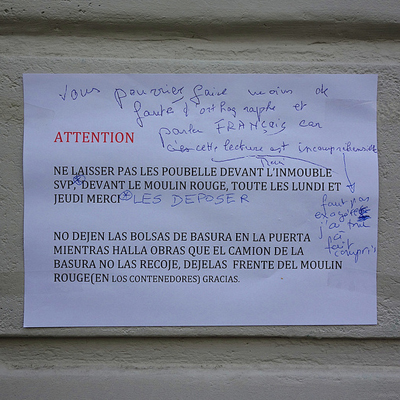 Vous pourriez faire moins de
faute d'orthographe et
parler FRANÇAIS car
cette lecture est incompréhensible
Merci
ATTENTION
NE LAISSER PAS LES POUBELLE DEVANT L'INMOUBLE
SVP, DEVANT LE MOULIN ROUGE, TOUTE LES LUNDI ET
JEUDI MERCI LES DEPOSER
faut pas
exagérer
j'ai tout
à
fait
compris
NO DEJEN LAS BOLSAS DE BASURA EN LA PUERTA
MIENTRAS HALLA OBRAS QUE EL CAMION DE LA
BASURA NO LAS RECOJE, DEJELAS FRENTE DEL MOULIN
ROUGE(EN LOS CONTENEDORES) GRACIAS.